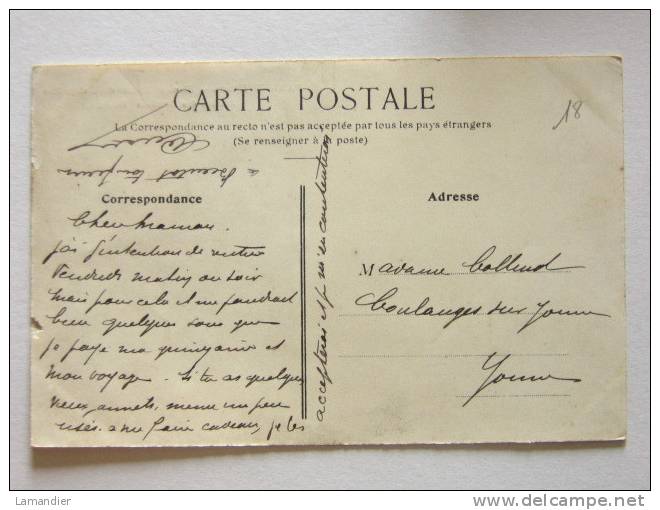 CARTE POSTALE
La Correspondance au recto n'est pas acceptée par tous les pays étrangers
(Se renseigner à la poste)
18
Correspondance
Chère Maman.
j'ai l'intention de rentrer
Vendredi matin ou soir
mais pour cela il me faudrait
bien quelques sous que
je paye ma quinzaine et
mon voyage. Si tu as quelques
vieux, même un peu
usés. à me faire cadeau, je les
accepterai et je m'en contenterai
à bientôt
Adresse
Madame
Coulanges sur Yonne
Yonne
Lamandier
delcampe.net